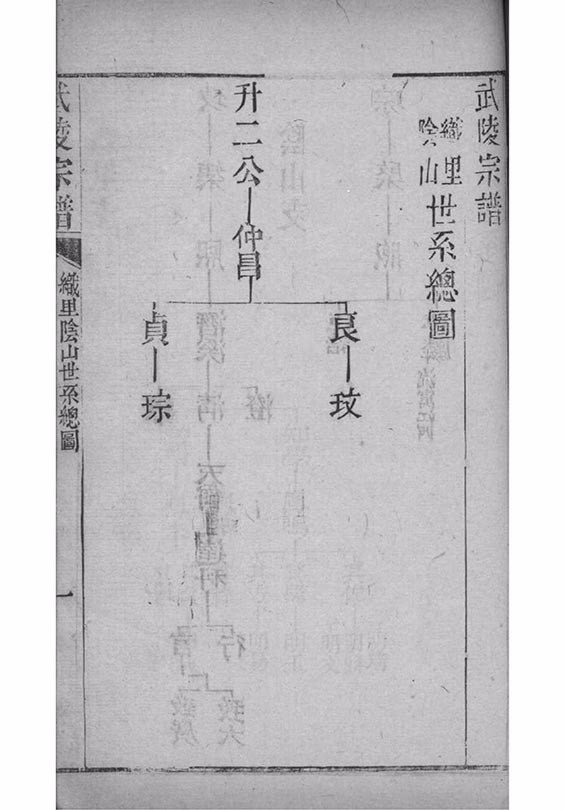 武陵宗譜
織里陰山世系總圖
升二公
仲昌
良
玟
貞
琮
武陵宗譜
織里陰山世系總圖
一